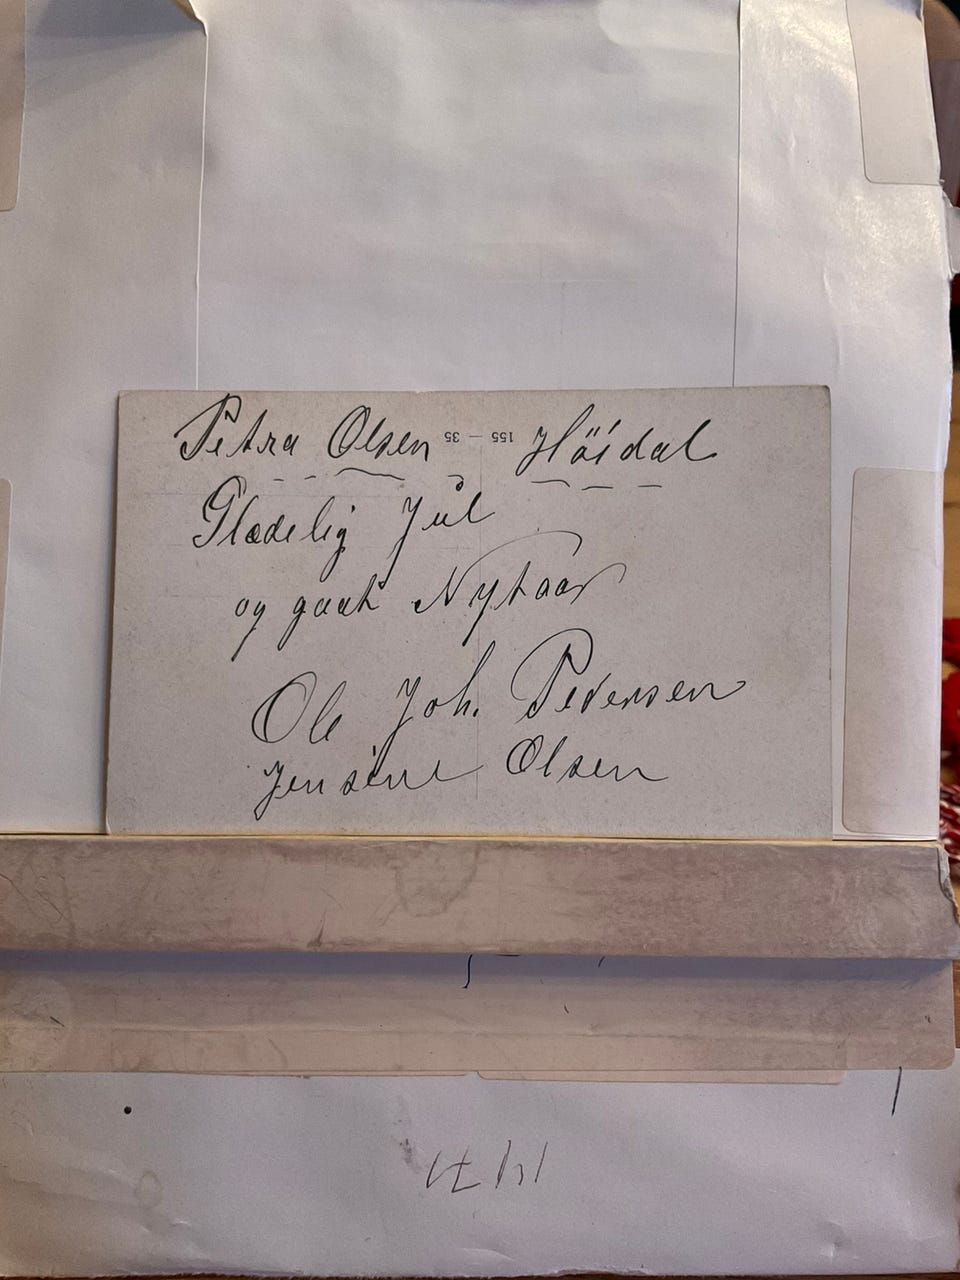 Petra Olsen 155 — 35 Höidal
Glædelig Jul
og godt Nytaar
Ole Joh. Pedersen
Jensine Olsen